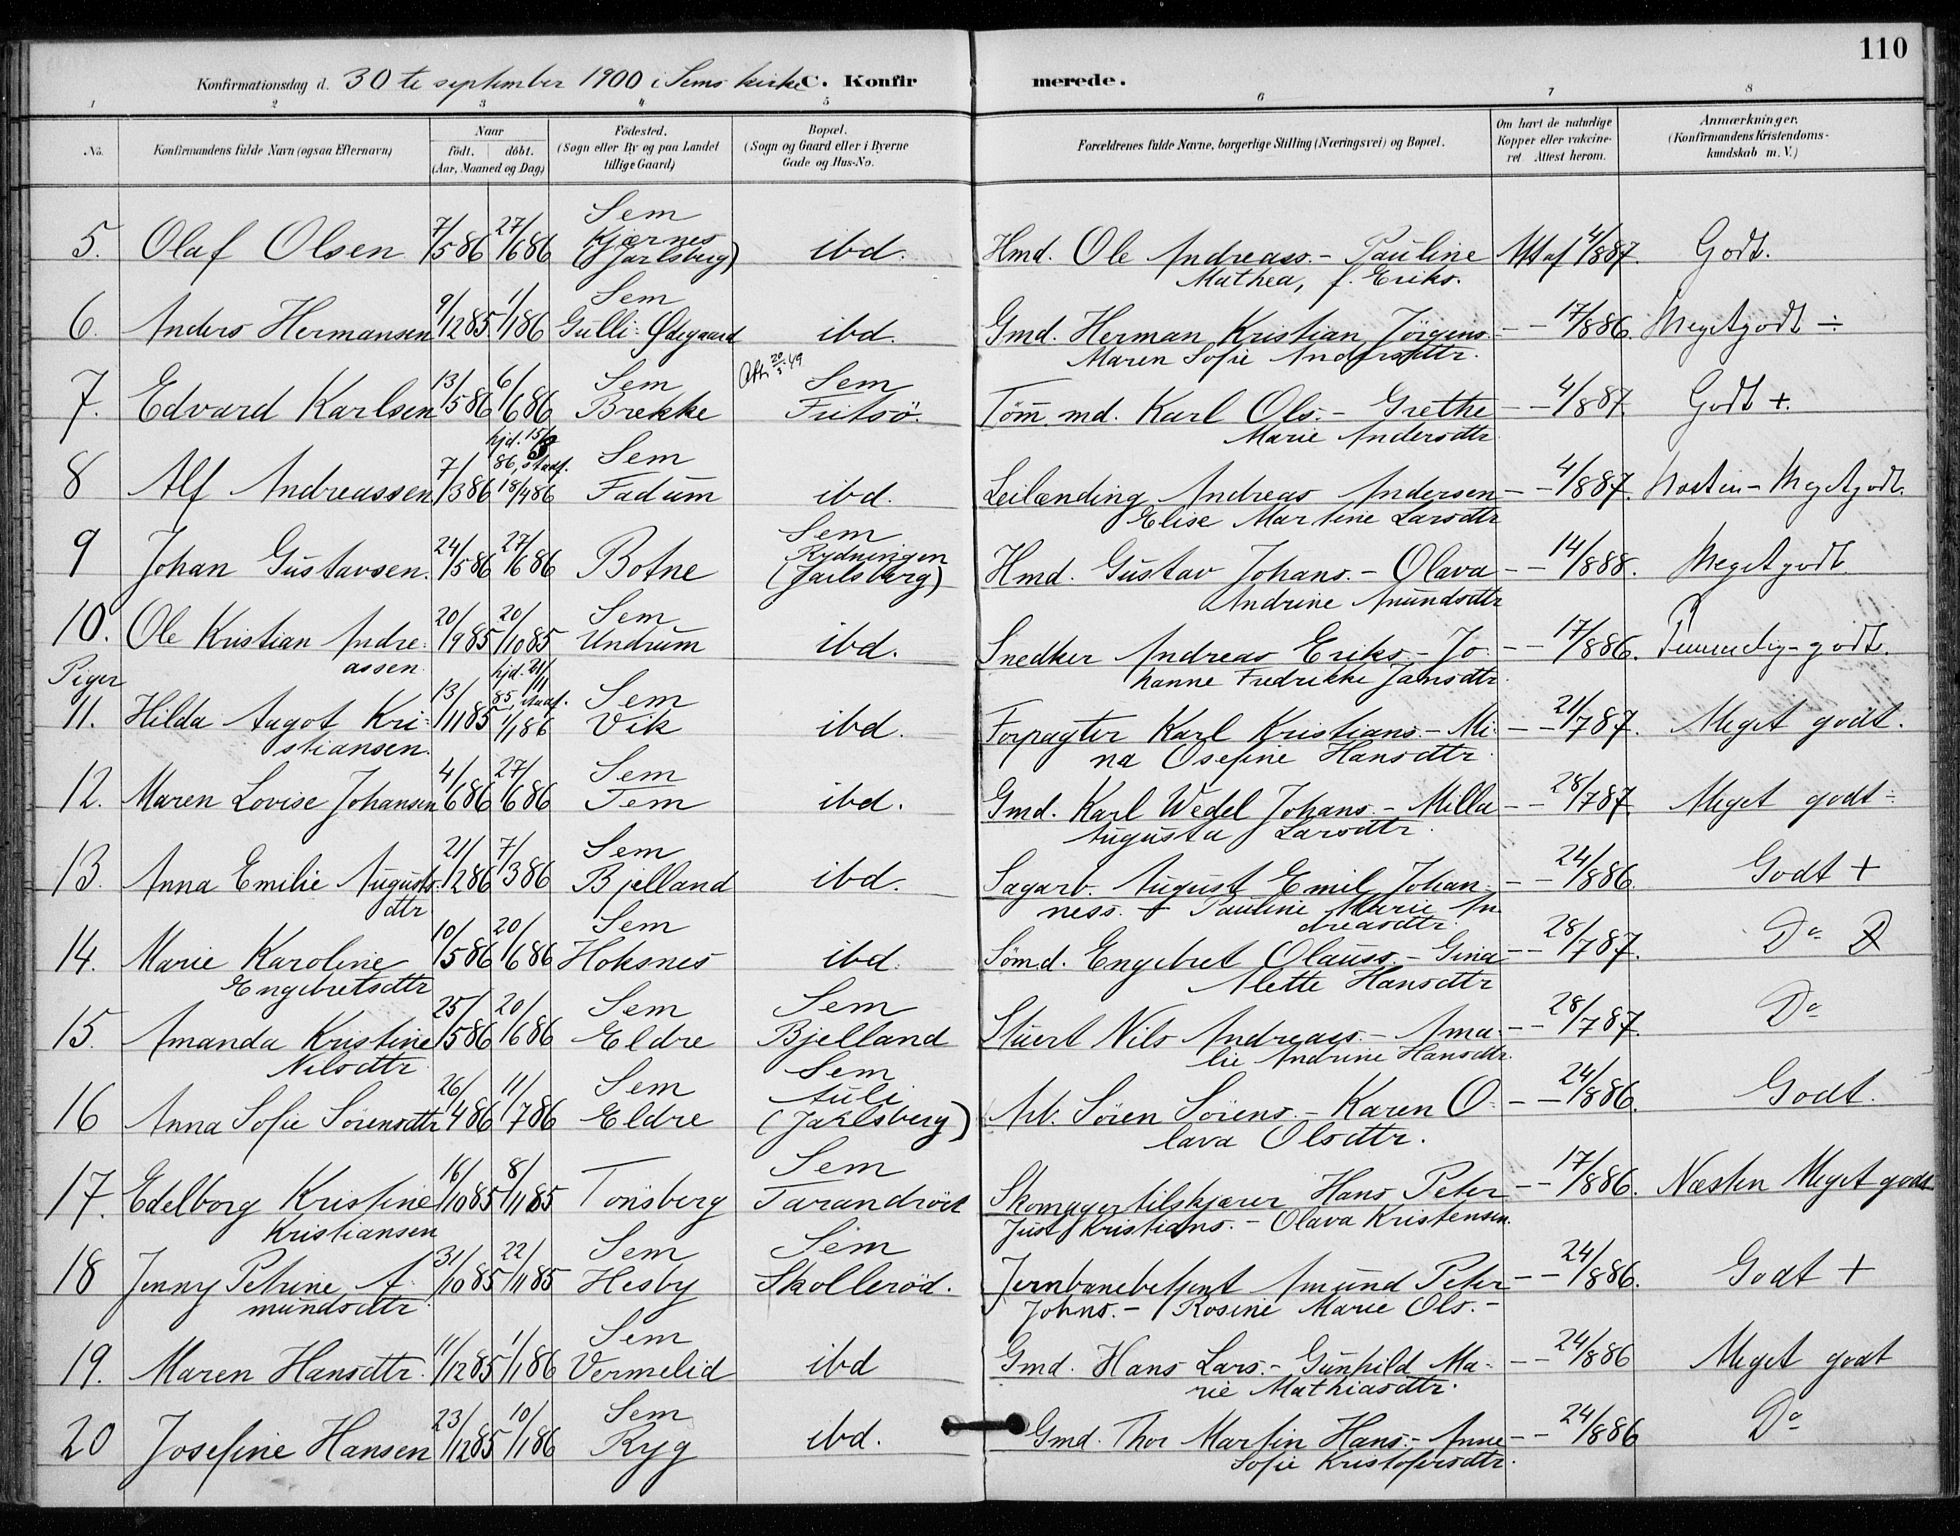 110
Konfirmationsdag d. 30 te september 1900 i Sems kirke C. Konfirmerede.
1 2 3 4 5 6 7 8
No. Konfirmandens fulde Navn (ogsaa Efternavn) Naar født. døbt. (Aar, Maaned og Dag) Fødested. (Sogn eller By og paa Landet tillige Gaard) Bopæl. (Sogn og Gaard eller i Byerne Gade og Hus-No. Forældrenes fulde Navne, borgerlige Stilling (Næringsvei) og Bopæl. Om havt de naturlige Kopper eller vakcineret. Attest herom. Anmærkninger. (Konfirmandens Kristendomskundskab m. V.)
Sem
5. Olaf Olsen 7/5 86 27/6 86 Kjærnes ibd. Hmd. Ole Andreass. - Pauline Att af 4/8 87. Godt.
(Jarlsberg) Mathea, f. Eriks.
Sem
6. Anders Hermansen 9/12 85 1/1 86 Gulli - Ødegaard ibd. Gmd. Herman Kristian Jörgens. - - 17/8 86. Meget godt ÷
Maren Sofie Andersdtr.
Sem Sem
7. Edvard Karlsen 13/5 86 6/6 86 Brekke Fritsö. Töm. md. Karl Ols. - Grethe - - 4/8 87. Godt +.
Marie Andersdtr.
hjd. 15/3 86, stadf. Sem
8 Alf Andreassen 7/3 86 18/4 86 Fadum ibd. Leilænding Andreas Andersen - - 4/8 87. Næsten - Meget godt.
Elise Martine Larsdtr
Sem
9 Johan Gustavsen. 24/5 86 27/6 86 Botne Rydningen Hmd. Gustav Johans. - Olava - - 14/8 88. Meget godt.
(Jarlsberg) Andrine Amundsdtr
Sem
10. Ole Kristian Andre- 20/9 85 20/10 85 Undrum ibd. Snedker Andreas Eriks. - Jo- - - 17/8 86. Temmelig - godt.
assen. hanne Fredrikke Jansdtr.
Piger
hjd. 21/11 85, stadf. Sem
11. Hilda Aagot Kri- 13/11 85 1/1 86 Vik ibd. Forpagter Karl Kristians. - Mi- - - 21/7 87. Meget godt.
stiansen. na Osefine Hansdtr.
Sem
12. Maren Lovise Johansen 4/6 86 27/6 86 Sem ibd. Gmd. Karl Wedel Johans. - Milla - - 28/7 87. Meget godt ÷
Augusta Larsdtr.
Sem
13. Anna Emilie Augusts- 21/1 286 7/3 86 Bjelland ibd. Sagarb. August Emil Johan- - - 24/8 86. Godt +
dtr ness. - Pauline Marie An
dreasdtr.
Sem
14. Marie Karoline 10/5 86 20/6 86 Hoksnes ibd. Sömd. Engebret Olauss. - Gina - - 28/7 87. Do
Engebretsdtr Alette Hansdtr
Sem Sem
15. Amanda Kristine 25/5 86 20/6 86 Eldre Bjelland Stuert Nils Andreass. - Ama- - - 28/7 87. Do
Nilsdtr lie Andrine Hansdtr.
Sem Sem
16 Anna Sofie Sörensdtr 26/4 86 11/7 86 Eldre Auli Arb. Sören Sörens. - Karen O- - - 24/8 86. Godt.
(Jarlsberg) lava Olsdtr.
Sem
17. Edelborg Kristine 16/10 85 8/11 85 Tönsberg Tarandröd Skomagertilskjærer Hans Peter - - 17/8 86. Næsten Meget godt
Kristiansen Just Kristians. - Olava Kristensen.
Sem Sem
18 Jenny Petrine A- 31/10 85 22/11 85 Hesby Skolleröd. Jernbanebetjent Amund Peter - - 24/8 86. Godt +
mundsdtr. Johns. - Rosine Marie Ols. -
Sem
19. Maren Hansdtr. 11/12 85 1/1 86 Vermelid ibd Gmd. Hans Lars. - Gunhild Ma- - - 24/8 86 Meget godt
rie Mathiasdtr.
Sem
20 Josefine Hansen 23/12 85 10/1 86 Ryg ibd. Gmd. Thor Martin Hans. - Anne - - 24/8 86 Do
Sofie Kristofersdtr.